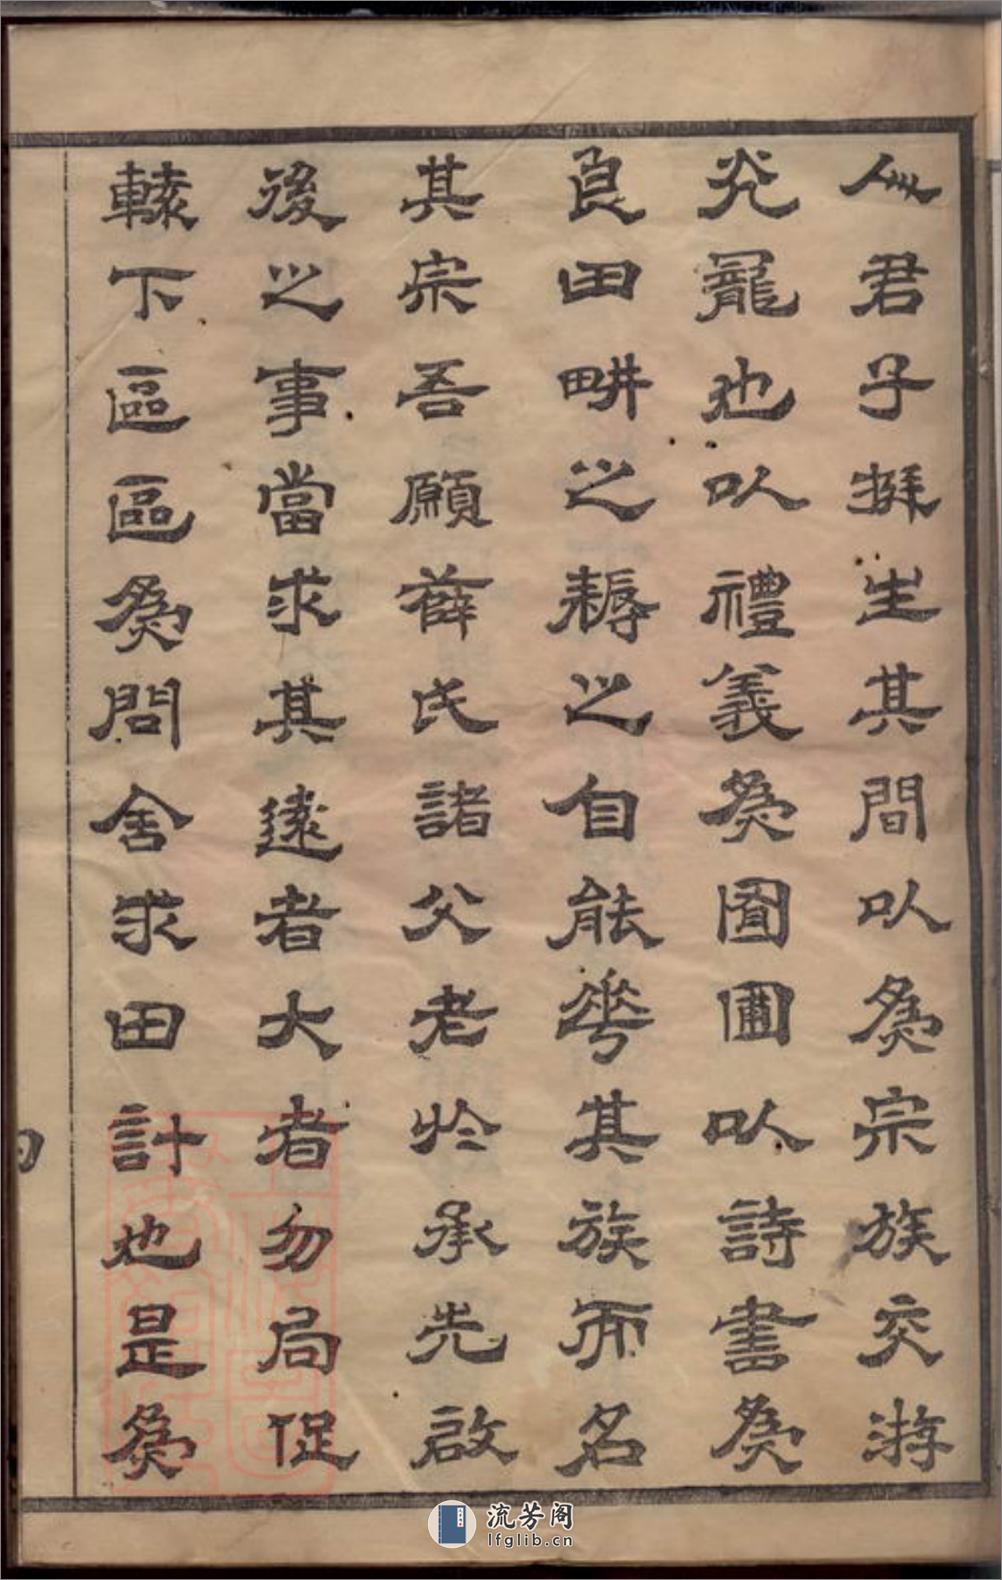 人君子挺生其間以為宗族交游
光寵也以禮義為園圃以詩書為
良田畊之耨之自能華其族而名
其宗吾願薛氏諸父老於承先啟
後之事當求其遠者大者勿局促
轅下區區為問舍求田計也是為
流芳阁
lfglib.cn